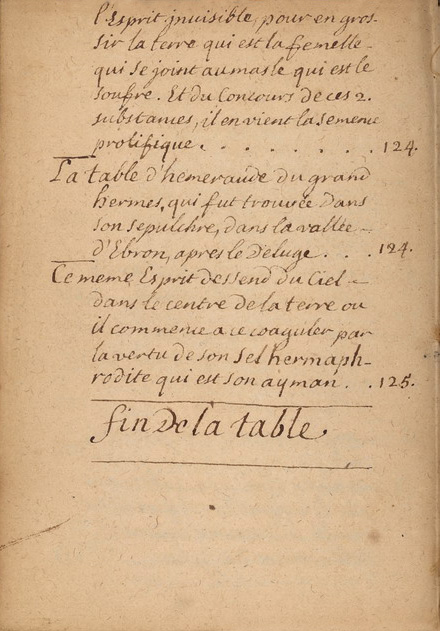 l'Esprit jnuisible, pour en gros-
sir la terre qui est la femelle -
qui se joint au masle qui est le
soufre. Et du Concours de ces 2.
substances, il en vient la semence
prolifique . . . . . . . 124.
La table d'hemeraude du grand
hermes, qui fut trouvée dans
son sepulchre, dans la vallée -
d'Ebron, apres le Deluge . . . 124.
Ce meme Esprit dessend du Ciel -
dans le centre de la terre ou
il commence a ce coaguler par
la vertu de son Sel hermaph-
rodite qui est son ayman . . 125.
fin de la table